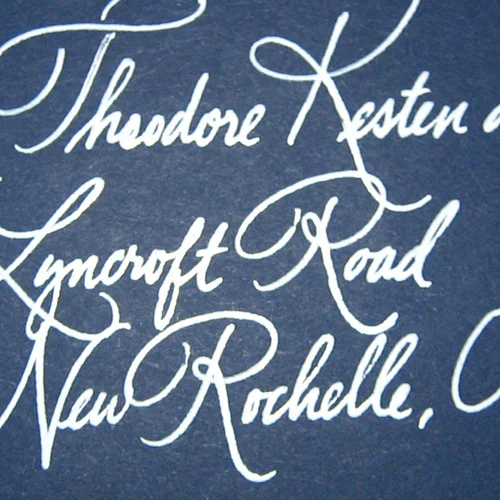 Theodore Kesten
Lyncroft Road
New Rochelle,